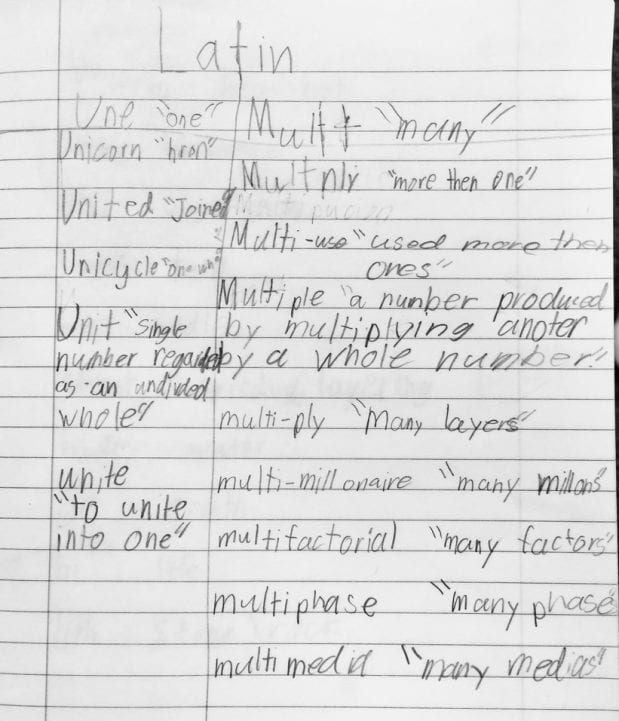 Latin
Une "one"
Unicorn "hron"
United "Joined"
Unicycle "one
Unit "single
number regarded
as-an undivided
whole"
unite
"to unite
into one"
Multi "many"
Multply "more then one"
Multi-use "used more then
ones"
Multiple "a number produced
by multiplying anoter
by a whole number."
multi-ply "Many layers"
multi-millonaire "many millons"
multifactorial "many factors"
multiphase "many phase"
multimedia "many medias"